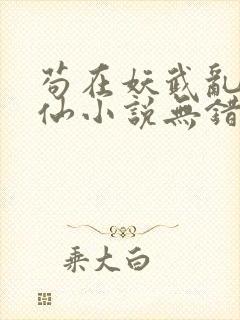 苟在妖武亂
仙小説無錯
乘大白